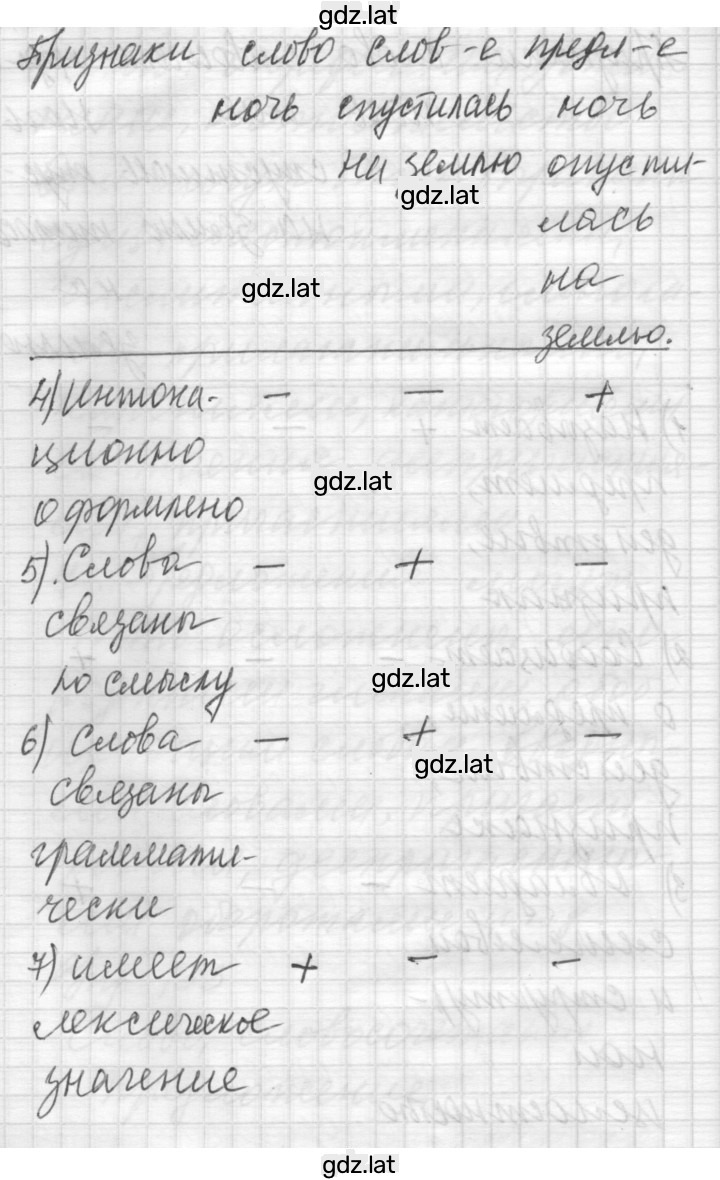 gdz.lat
Признаки слово слов-е предл-е
ночь спустилась ночь
на землю опусти-
gdz.lat
лась
gdz.lat на
землю.
4) Интона- — — +
ционно
gdz.lat
оформлено
5). Слова — + —
связаны
по смыслу gdz.lat
6) Слова — + —
gdz.lat
связаны
граммати-
чески
7) имеет + — —
лексическое
значение
gdz.lat